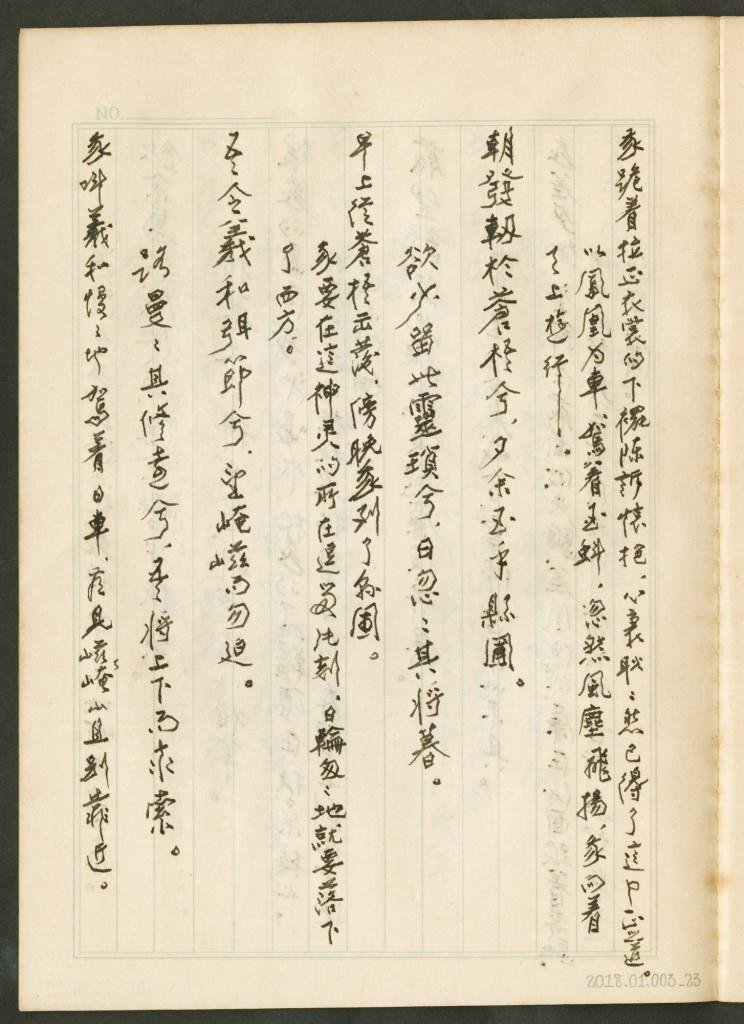 我跪着拉正衣裳的下襬陈訴懷抱，心裏耿〻然已得了這中正之道。
以鳳凰为車、駕着玉虯，忽然風塵飛揚，我向着
天上遊行——。
朝發軔於蒼梧兮，夕余至乎縣圃。
欲少畱此靈瑣兮，日忽〻其將暮。
早上從蒼梧出發，傍晚我到了縣圃。
我要在這神灵的所在逗留片刻，日輪匆〻地就要落下
了西方。
吾令羲和弭節兮，望崦嵫而勿迫。
路曼〻其修遠兮，吾將上下而求索。
我叫羲和慢〻地駕着日車，看見嵫崦山且别靠近。
NO.
2018.01.003_23